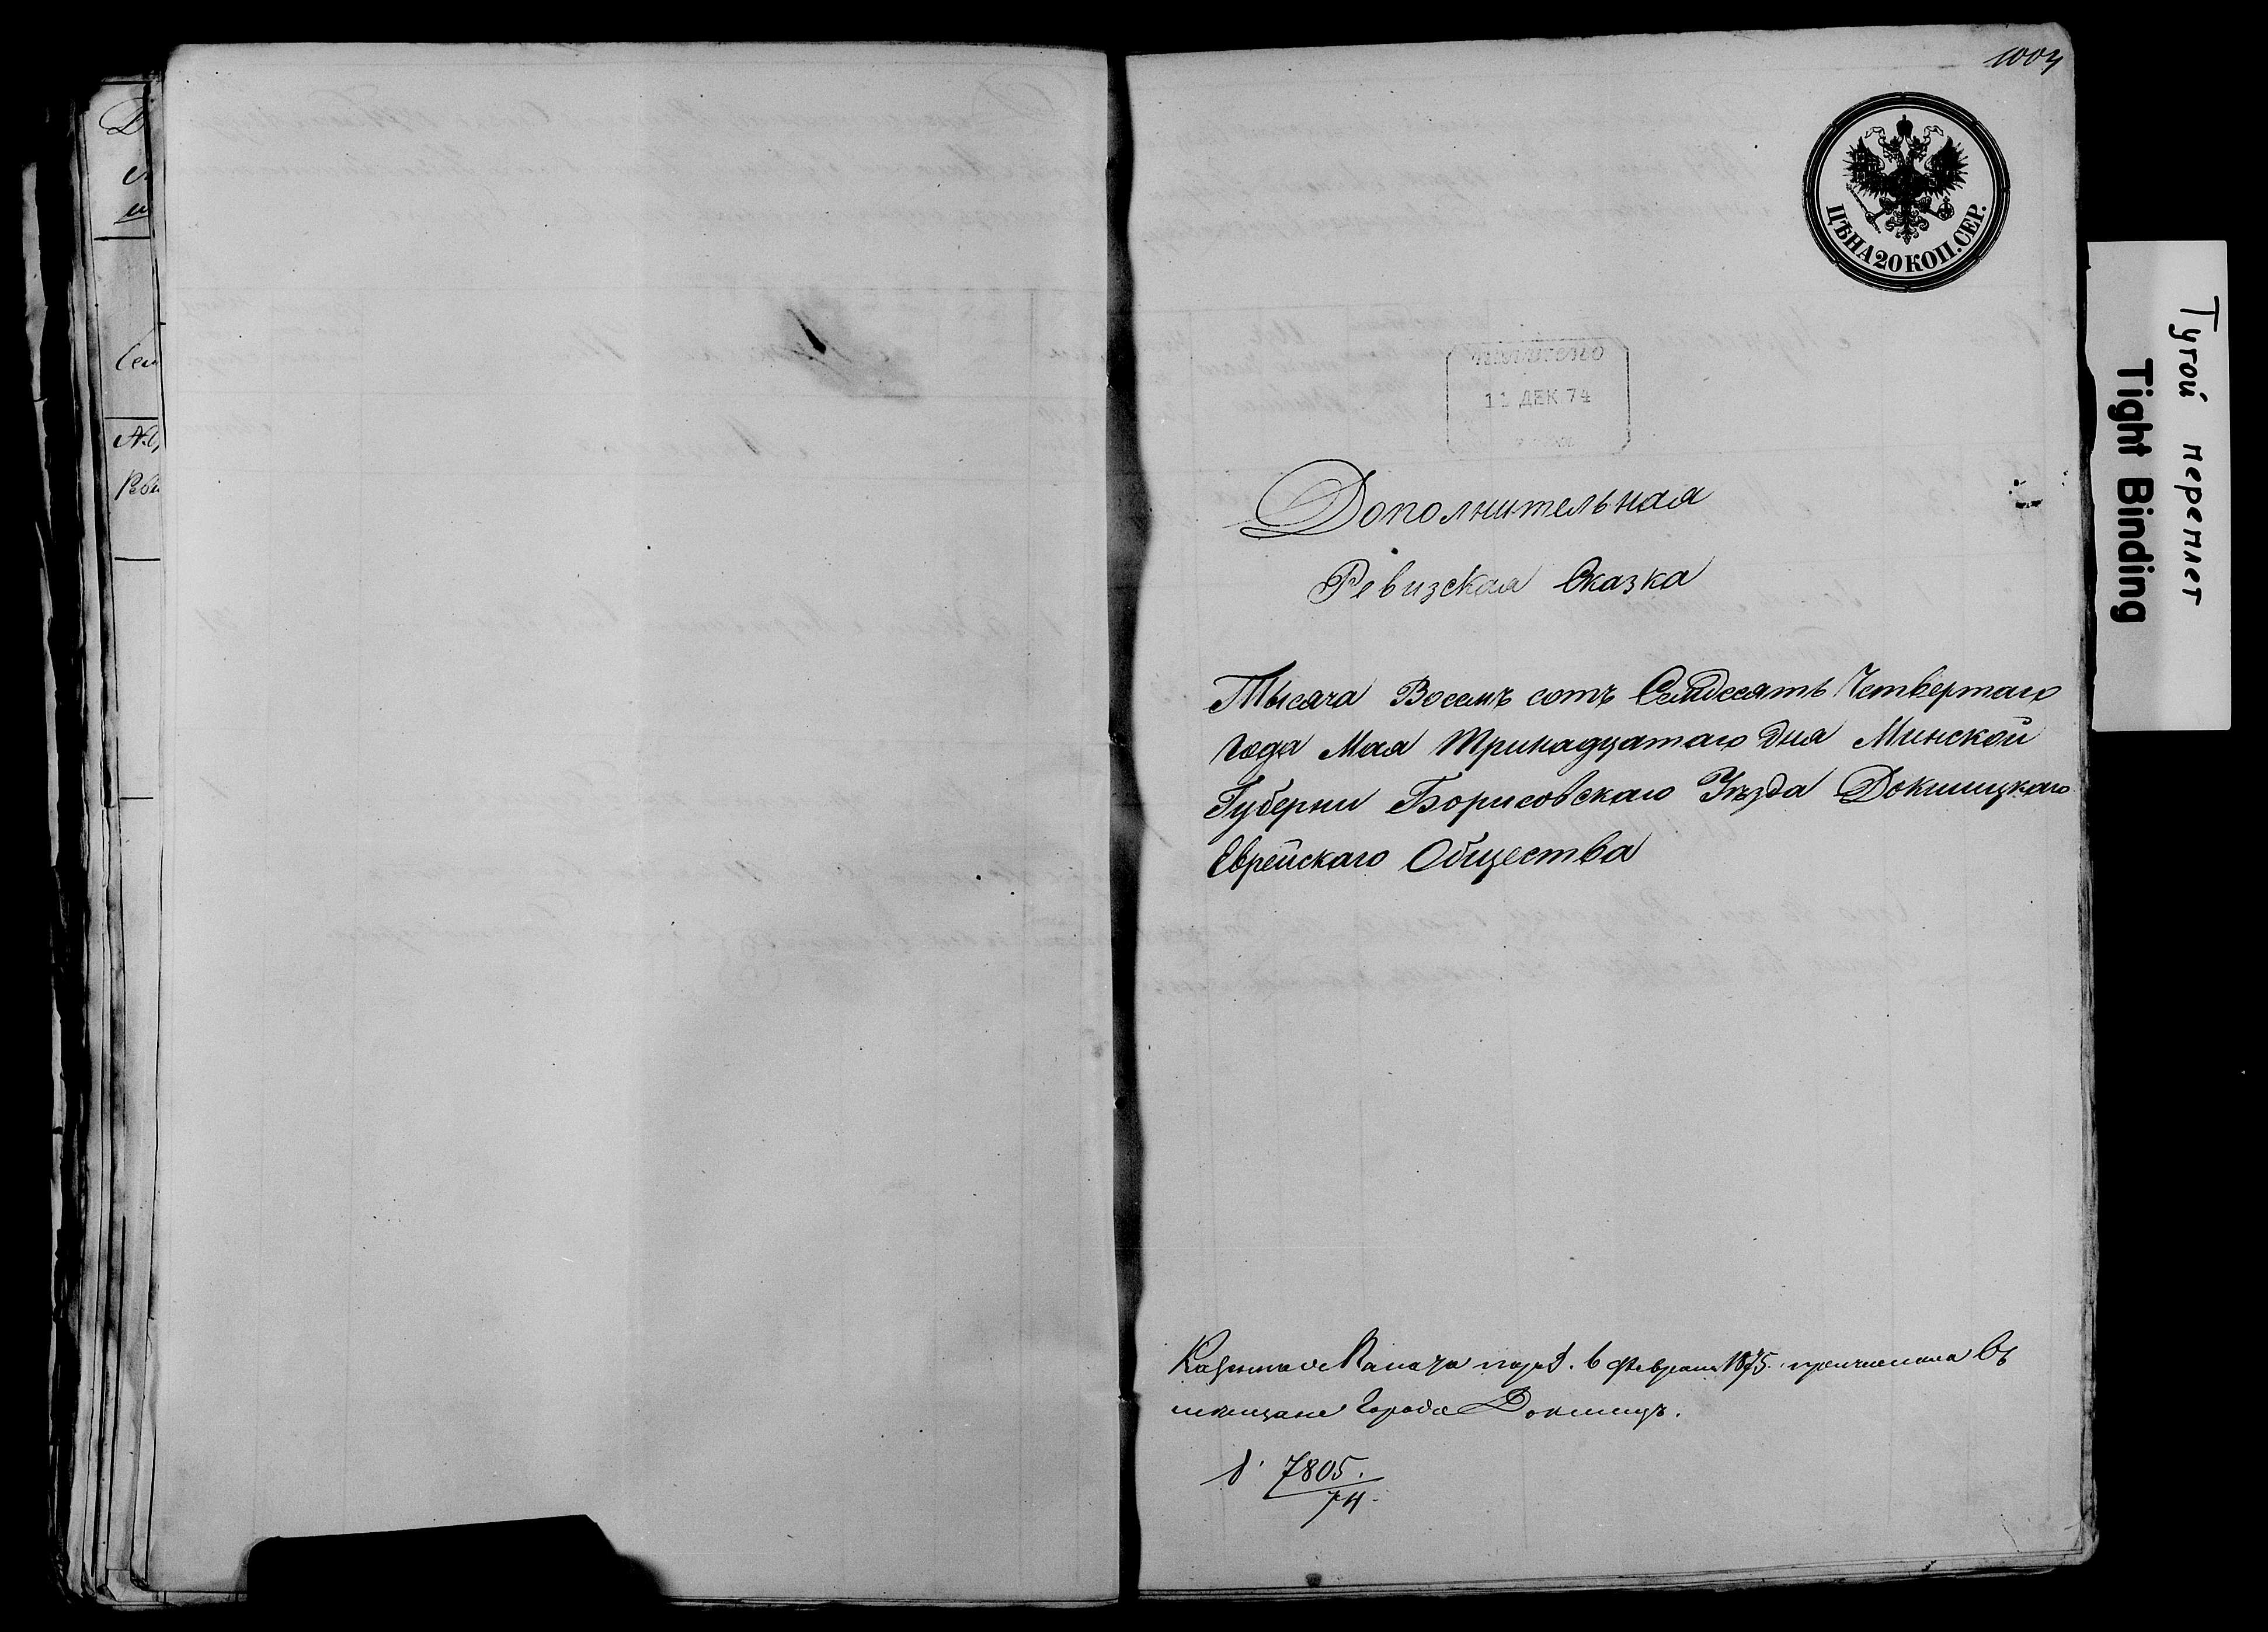 1004
ЦѢНА 20 КОП. СЕР.
11 ДЕК 74
Дополнительная
Ревизская Сказка
Тысяча Восемъ сотъ Семдесятъ Четвертаго
Года Мая Тринадцатаго Дня Минской
Губерни Борисовскаго Уѣзда Докшицкаго
Еврейскаго Общества
Казенная Палата 6 Февраля 1875. причислила въ
мѣщане Города Докшицъ.
7805.
74.
Тугой переплет
Tight Binding